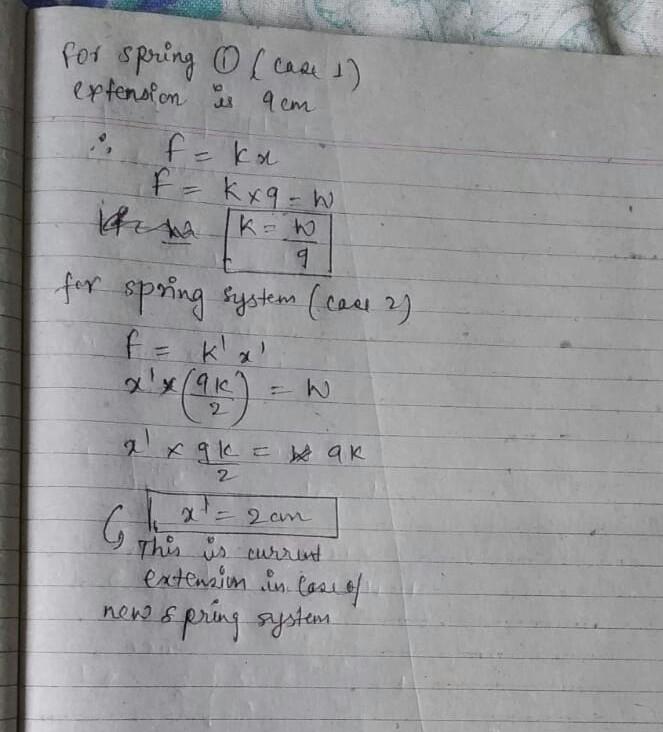 for spring ① (case 1)
extension is 9cm
∴ f = kx
F = k×9 = W
k = W/9
for spring system (case 2)
f = k' x'
x' × (9k/2) = W
x' × 9k/2 = 9k
x' = 2cm
This is current
extension in case of
new spring system